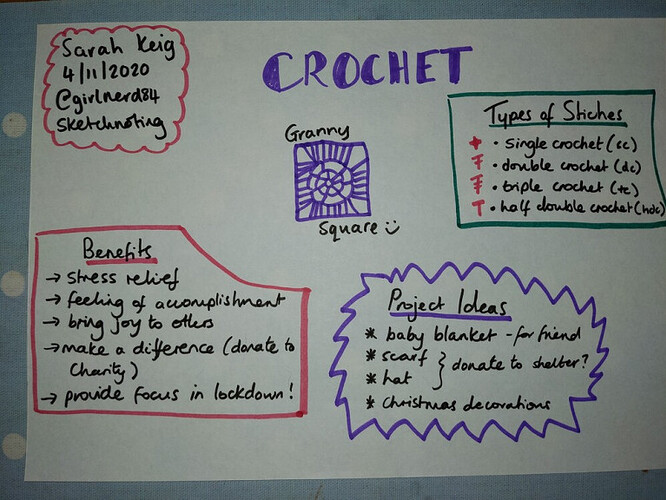 Sarah Keig
4/11/2020
@girlnerd84
Sketchnoting
CROCHET
Granny
Square
Types of Stiches
• single crochet (sc)
• double crochet (dc)
• triple crochet (tc)
• half double crochet (hdc)
Benefits
→ stress relief
→ feeling of accomplishment
→ bring joy to others
→ make a difference (donate to
Charity)
→ provide focus in lockdown!
Project Ideas
* baby blanket - for friend
* scarf } donate to shelter?
* hat
* christmas decorations